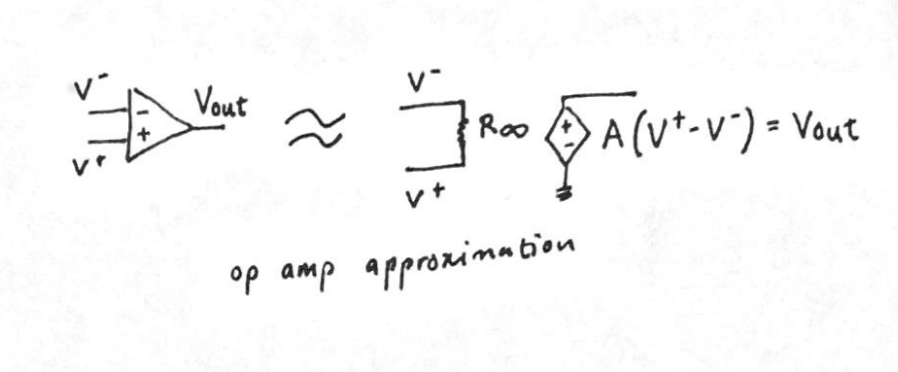 V⁻ - + V⁺ Vout ≈ V⁻ V⁺ R∞ + - A(V⁺-V⁻) = Vout
op amp approximation